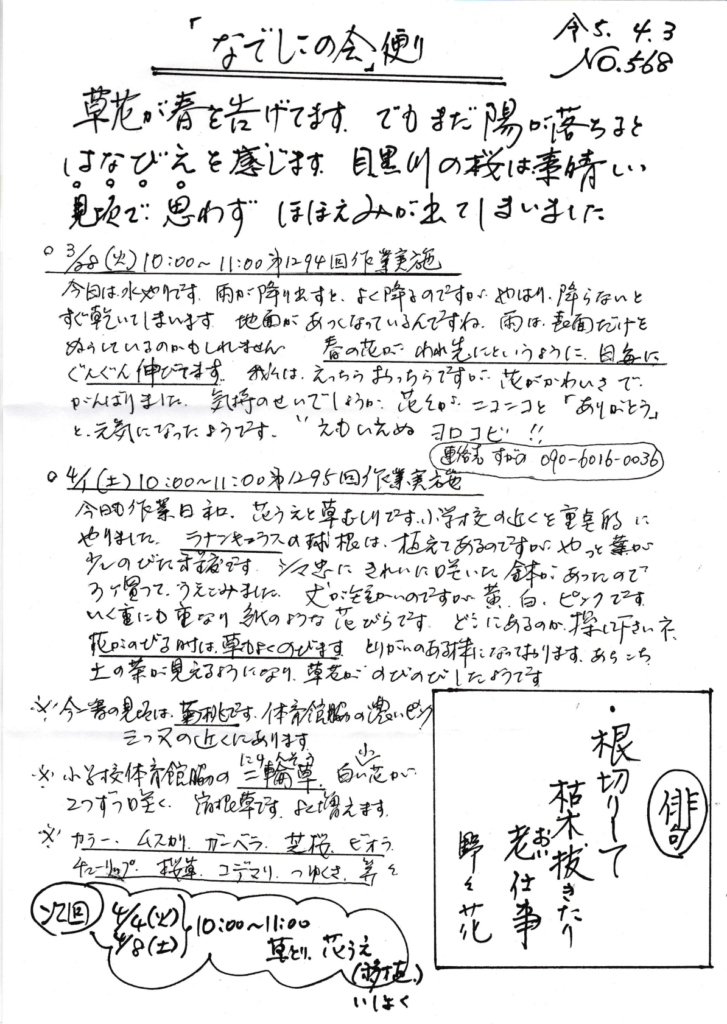 令5.4.3
「なでしこの会」便り
NO.568
草花が春を告げてます。でもまだ陽が落ちると
はなびえを感じます。目黒川の桜は素晴しい
見頃で思わずほほえみが出てしまいました
○ 3/28(火)10:00〜11:00 第1294回作業実施
今日は、水やりです。雨が降り出すと、よく降るのですが、やはり、降らないと
すぐ乾いてしまいます。地面があつくなっているんですね。雨は、表面だけを
ぬらしているのかもしれません 春の花が、われ先にというように、日毎に
ぐんぐん伸びてます。我々は、えっちらおっちらですが、花がかわいさで、
がんばりました。気持のせいでしょうか、花々が、ニコニコと「ありがとう」
と、元気になったようです。"えもいえぬ ヨロコビ!!
連絡先 すがの 090-6016-0036
○ 4/1(土)10:00〜11:00 第1295回作業実施
今日も作業日和、花うえと草むしりです。小学校の近くを重点的に
やりました。ラナンキュラスの球根は、植えてあるのですが、やっと葉が
少しのびた程度です。シマ忠にきれいに咲いた鉢があったので
3ヶ買って、うえこみました。丈が短かいのですが、黄、白、ピンクです
いく重にも重なり紙のような花びらです。どこにあるのか、探して下さいネ
花がのびる時は、草もよくのびます とりがいのある様になっております。あちこち
土の茶が見えるようになり、草花が、のびのびしたようです
※今一番の見頃は、菊桃です。体育館脇の濃いピンク
三つ又の近くにあります
※小学校体育館脇の二輪草、白い小花が
にりんそう
2つずつ咲く、宿根草です。よく増えます。
※カラー、ムスカリ、ガーベラ、芝桜、ビオラ
チューリップ、桜草、コデマリ、つゆくさ、等々
俳句
・根切りして
枯木抜きたり
老仕事
おい
野々花
次回
4/4(火)
4/8(土)
10:00〜11:00
草とり、花うえ
(移植)
いしょく